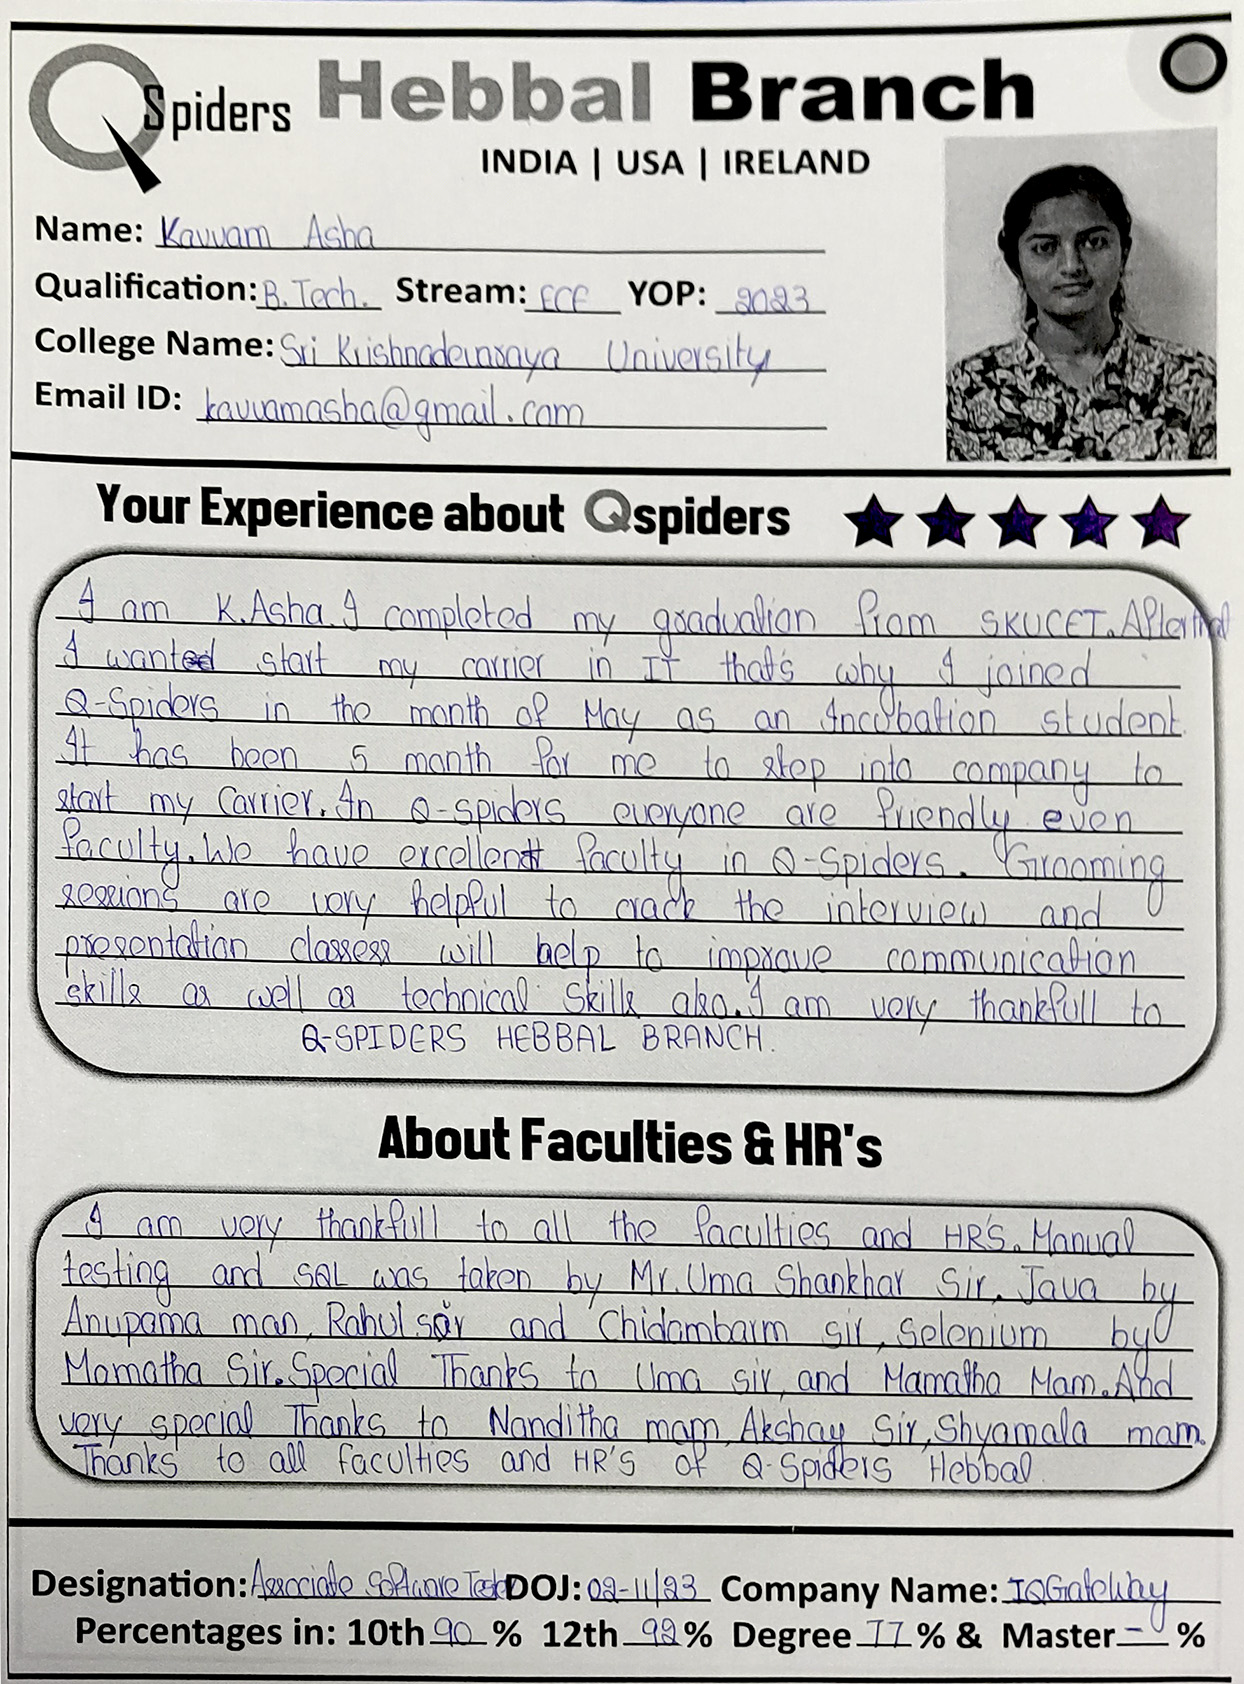 QSpiders Hebbal Branch
INDIA | USA | IRELAND
Name: Kavvam Asha
Qualification: B.Tech. Stream: ECE YOP: 2023
College Name: Sri Krishnadevaraya University
Email ID: kavvamasha@gmail.com
Your Experience about Qspiders
I am K.Asha. I completed my graduation from SKUCET. After that
I wanted start my carrier in IT that's why I joined
Q-Spiders in the month of May as an Incubation student.
It has been 5 month for me to step into company to
start my Carrier. In Q-spiders everyone are friendly even
faculty. We have excellent faculty in Q-Spiders. Grooming
sessions are very helpful to crack the interview and
presentation classess will help to improve communication
skills as well as technical skills also. I am very thankfull to
Q-SPIDERS HEBBAL BRANCH.
About Faculties & HR's
I am very thankfull to all the faculties and HR'S. Manual
testing and SQL was taken by Mr. Uma Shankhar Sir. Java by
Anupama man, Rahul sir and Chidambarm sir, Selenium by
Mamatha Sir. Special Thanks to Uma sir, and Mamatha Mam. And
very special Thanks to Nanditha mam, Akshay Sir, Shyamala mam.
Thanks to all faculties and HR'S of Q-Spiders Hebbal.
Designation: Associate Software Tester DOJ: 02-11/23 Company Name: IQGateway
Percentages in: 10th 90 % 12th 92 % Degree 77 % & Master - %